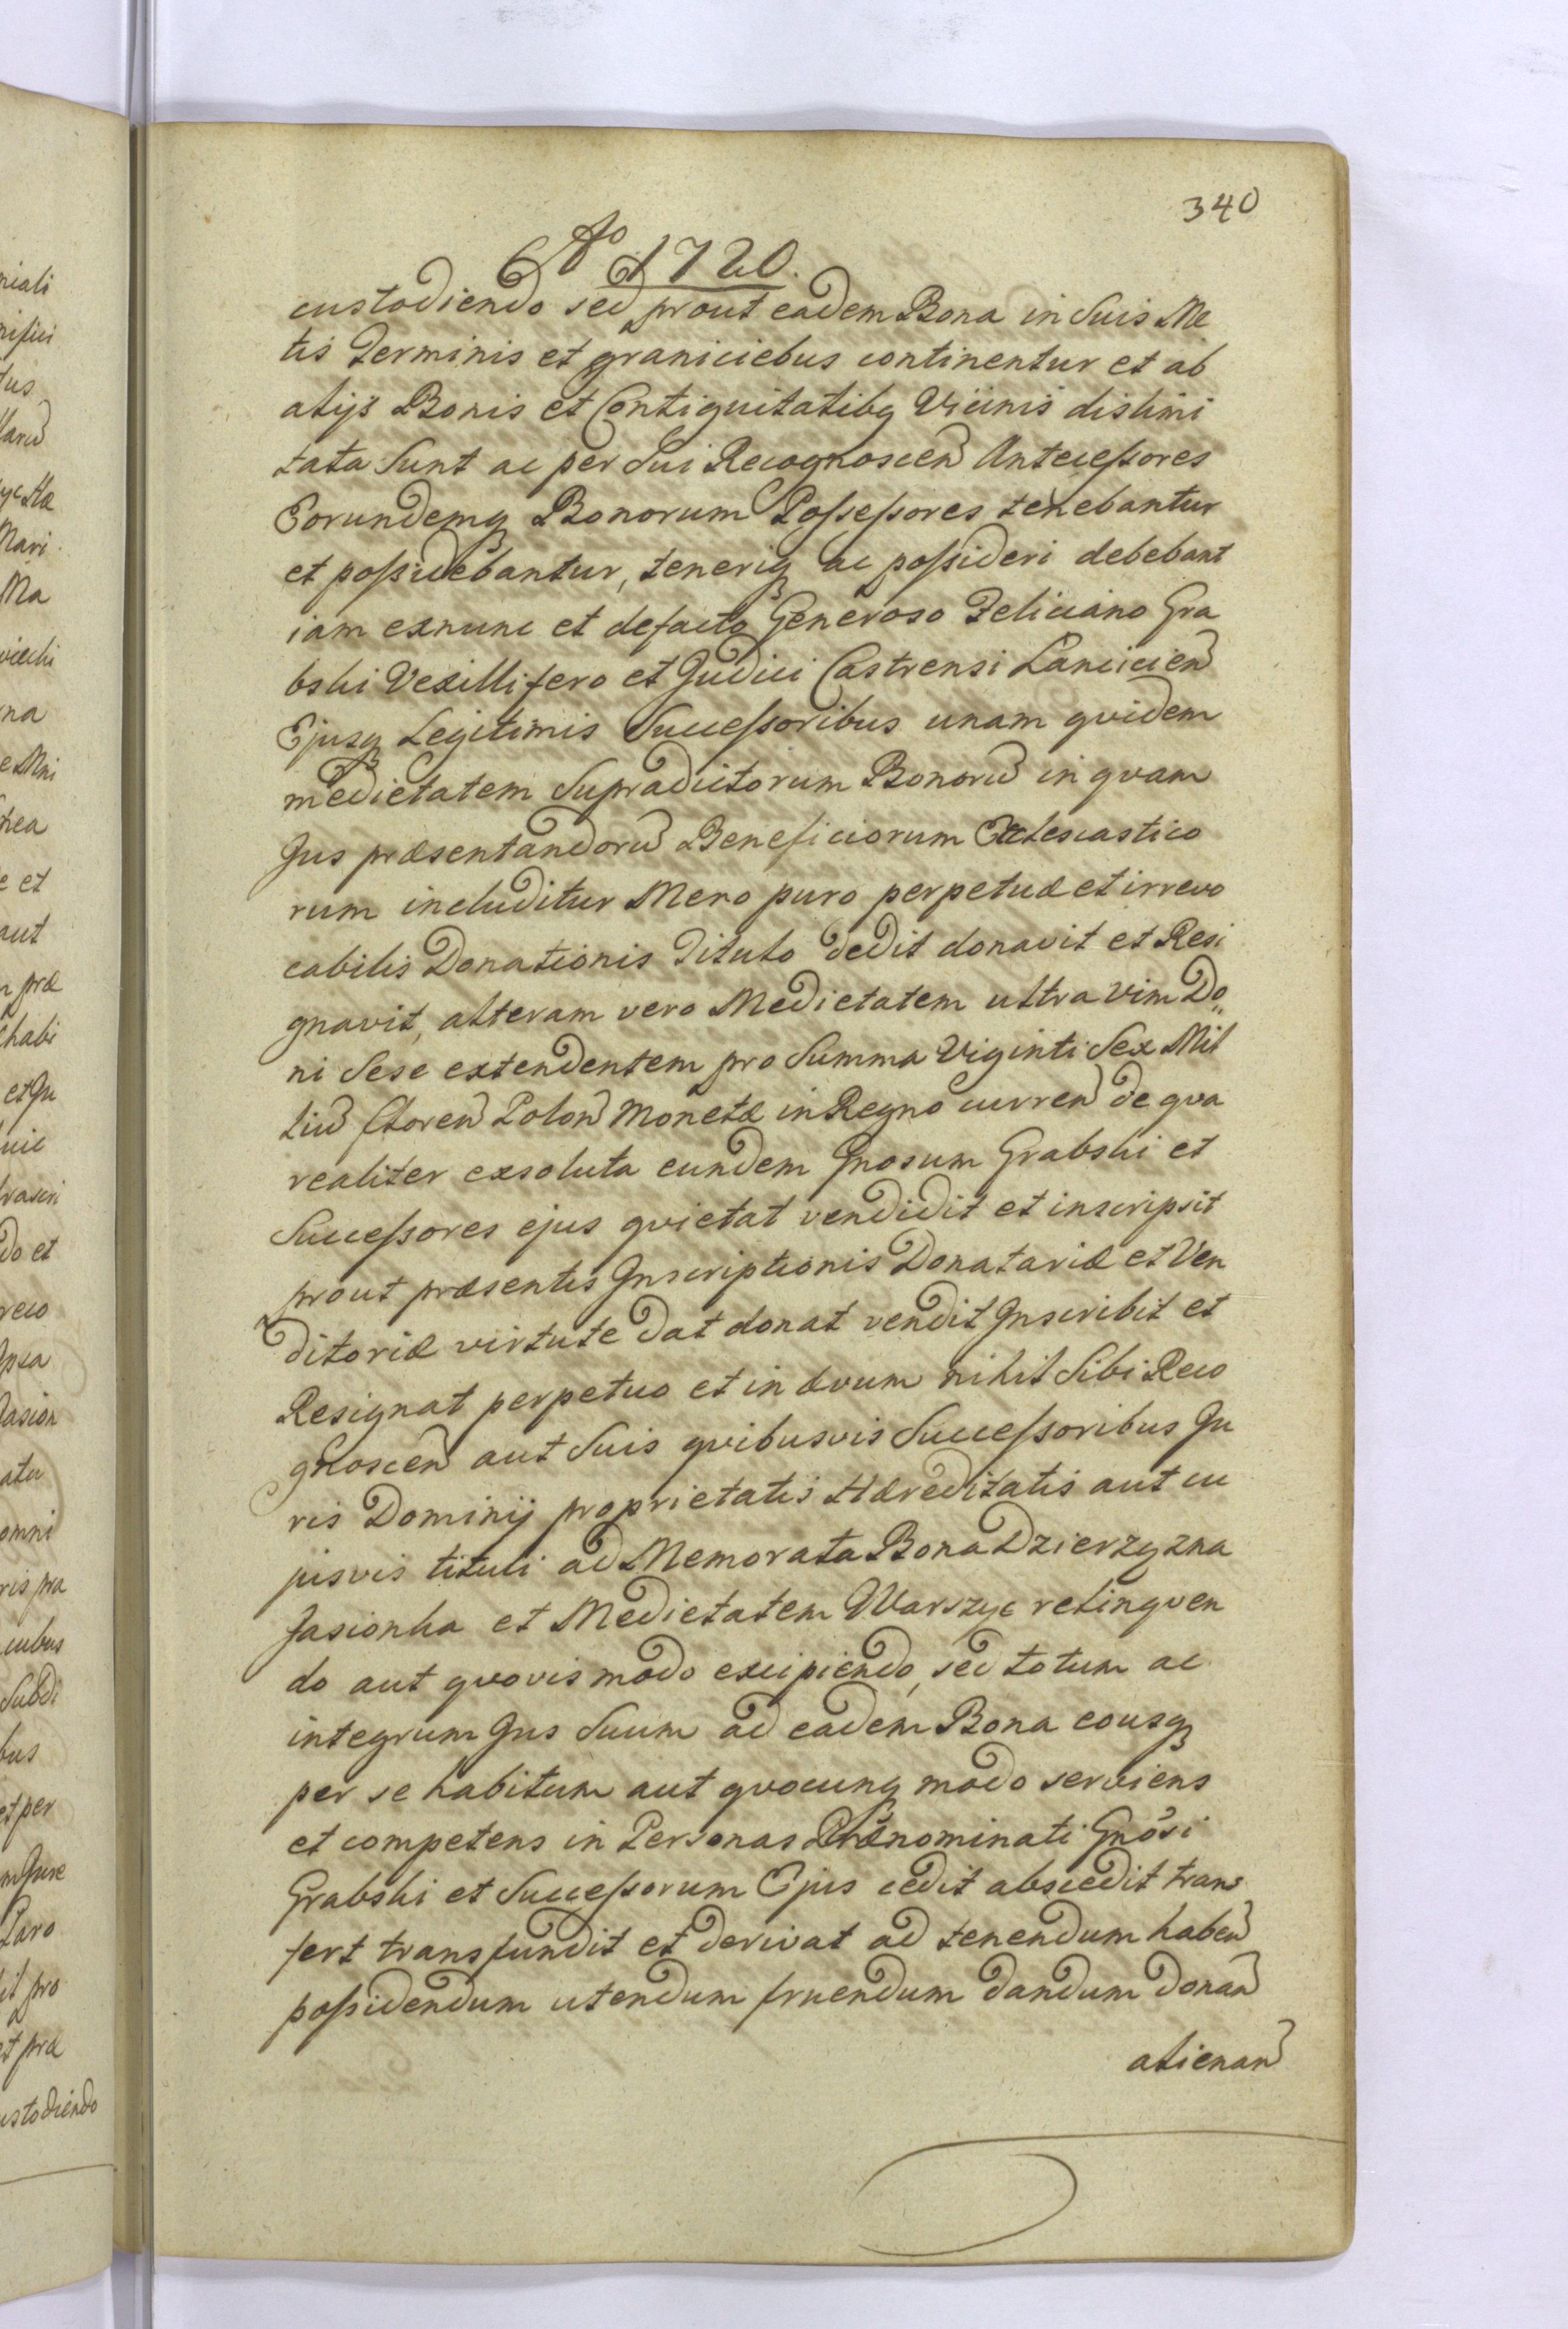 340
Ao 1720.
custodiendo sed prout eadem Bona in Suis Me
tis Terminis et graniciebus continentur et ab
alijs Bonis et Contiguitatibq Vicinis dislimi
tata Sunt ac per Sui Recognoscen Antecessores
Eorundemq Bonorum Possessores tenebantur
et possidebantur, teneriq ac possideri debebant
iam exnunc et defacto Generoso Feliciano Gra
bski Vexillifero et Judici Castrensi Lancicien
Ejusq Legitimis Successoribus unam quidem
medietatem Supradictorum Bonoru in quam
Jus præsentandoru Beneficiorum Ecclesiastico
rum includitur Mero puro perpetuæ et irrevo
cabilis Donationis Titulo dedit donavit et Resi
gnavit, alteram vero Medietatem ultra vim Do
ni Sese extendentem pro Summa Viginti Sex Mil
liu floren Polon Monetæ in Regno curren de qva
realiter exsoluta eundem Gnosum Grabski et
Successores ejus qvietat vendidit et inscripsit
prout præsentis Inscriptionis Donatariæ et Ven
ditoriæ virtute dat donat vendit Inscribit et
Resignat perpetuo et in ævum nihil Sibi Reco
gnoscen aut Suis qvibusvis Successoribus Ju
ris Dominij proprietatis Hæreditatis aut cu
jusvis tituli ad Memorata Bona Dzierzgzna
Jasionka et Medietatem Warszyc relinqven
do aut qvovis modo excipiendo, sed totum ac
integrum Jus Suum ad eadem Bona eousq
per se habitum aut qvocunq modo serviens
et competens in Personas Prænominati Gnosi
Grabski et Successorum Ejus cedit abscedit trans
fert transfundit et derivat ad tenendum haben
possidendum utendum fruendum dandum donan
alienan